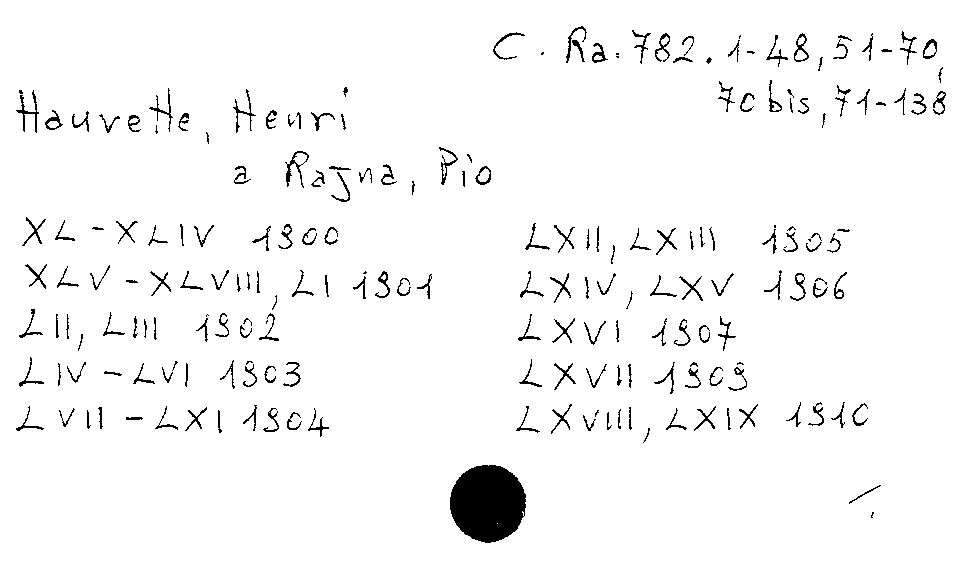 C. Ra. 782. 1-48, 51-70,
70 bis, 71-138
Hauvette, Henri
a Rajna, Pio
XL - XLIV 1900
XLV - XLVIII, LI 1901
LII, LIII 1902
LIV - LVI 1903
LVII - LXI 1904
LXII, LXIII 1905
LXIV, LXV 1906
LXVI 1907
LXVII 1909
LXVIII, LXIX 1910